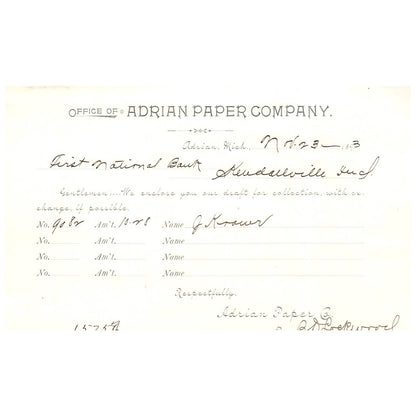 OFFICE OF ADRIAN PAPER COMPANY.
Adrian, Mich., Nov. 23 — 3
First National Bank Kendallville Ind.
Gentlemen:—We enclose you our draft for collection, with ex
change, if possible.
No. 9082 Am't. 13.28 Name J Kraus
No. Am't. Name
No. Am't. Name
No. Am't. Name
Respectfully,
Adrian Paper Co
Lockwood